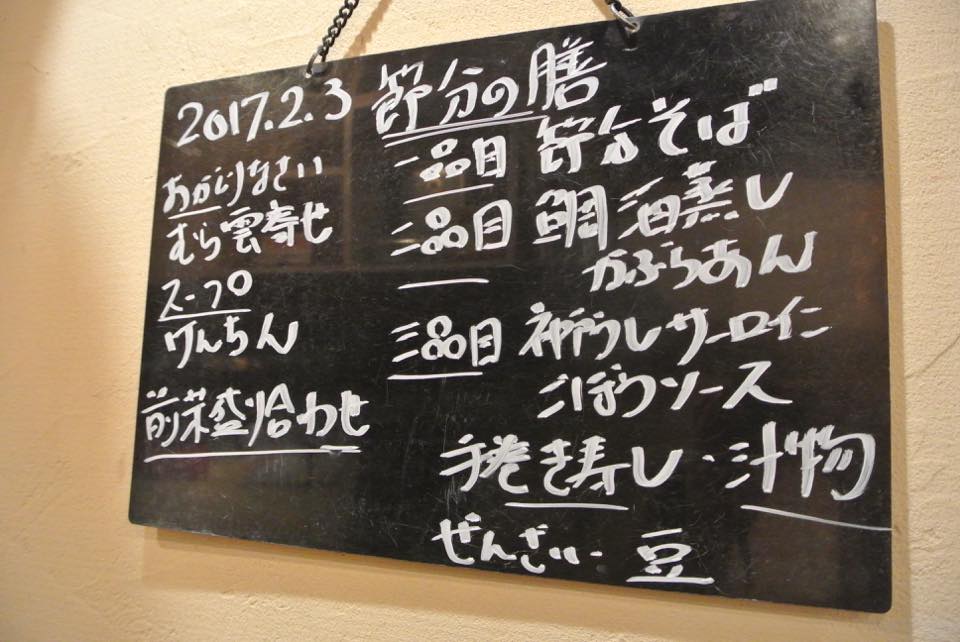 2017.2.3 節分の膳
おかえりなさい
むら雲寄せ
スープ
けんちん
前菜盛り合わせ
一品目 節分そば
二品目 鯛 油蒸し
かぶらあん
三品目 神戸うしサーロイン
ごぼうソース
手巻き寿し・汁物
ぜんざい・豆